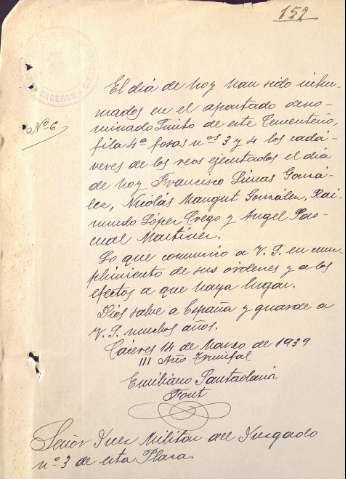 152
Nº 6
El día de hoy han sido inhu-
mados en el apartado deno-
minado Finito de este Cementerio,
fila 4ª fosas nos 3 y 4 los cadá-
veres de los reos ejecutados el día
de hoy Francisco Limas Gonzá-
lez, Nicolás Mangut González, Rai-
mundo López Crego y Angel Pas-
cual Martínez.
Lo que comunico a V. S. en cum-
plimiento de sus órdenes y a los
efectos a que haya lugar.
Dios salve a España y guarde a
V. S. muchos años.
Cáceres 14 de Marzo de 1939
III Año Triunfal
Emiliano
Señor Juez Militar del Juzgado
nº 3 de esta Plaza.